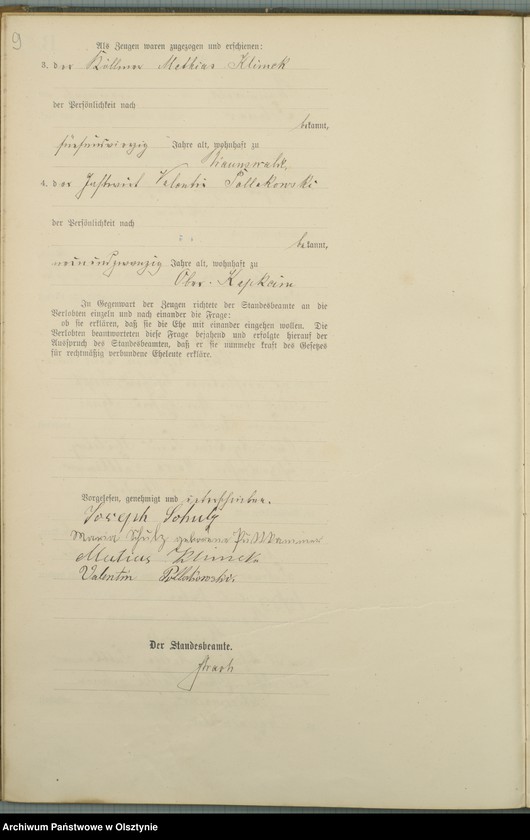 9
Als Zeugen waren zugezogen und erschienen:
3. der Köllmer Mathias Klimek
der Persönlichkeit nach
bekannt,
fünfundvierzig Jahre alt, wohnhaft zu
Braunswalde
4. der Gastwirt Valentin Pollakowski
der Persönlichkeit nach
bekannt,
neunundzwanzig Jahre alt, wohnhaft zu
Ober-Kapkeim
In Gegenwart der Zeugen richtete der Standesbeamte an die
Verlobten einzeln und nach einander die Frage:
ob sie erklären, daß sie die Ehe mit einander eingehen wollen. Die
Verlobten beantworteten diese Frage bejahend und erfolgte hierauf der
Ausspruch des Standesbeamten, daß er sie nunmehr kraft des Gesetzes
für rechtmäßig verbundene Eheleute erkläre.
Vorgelesen, genehmigt und unterschrieben.
Joseph Schulz
Maria Schulz geborene
Matias Klimek
Valentin Pollakowski.
Der Standesbeamte.
Archiwum Państwowe w Olsztynie